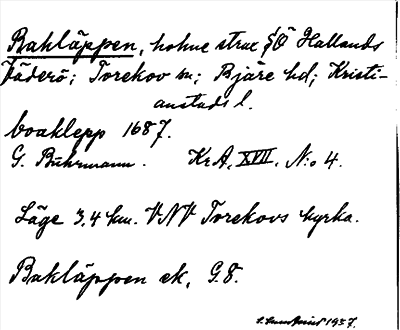 Bakläppen, holme strax SÖ Hallands
Väderö; Torekov sn; Bjäre hd; Kristi-
anstads l.
boaklepp 1687.
G. Buhrmann. KrA, XVII, N:o 4.
Läge 3,4 km. VNV Torekovs kyrka.
Bakläppen ek, G.8.
1937.